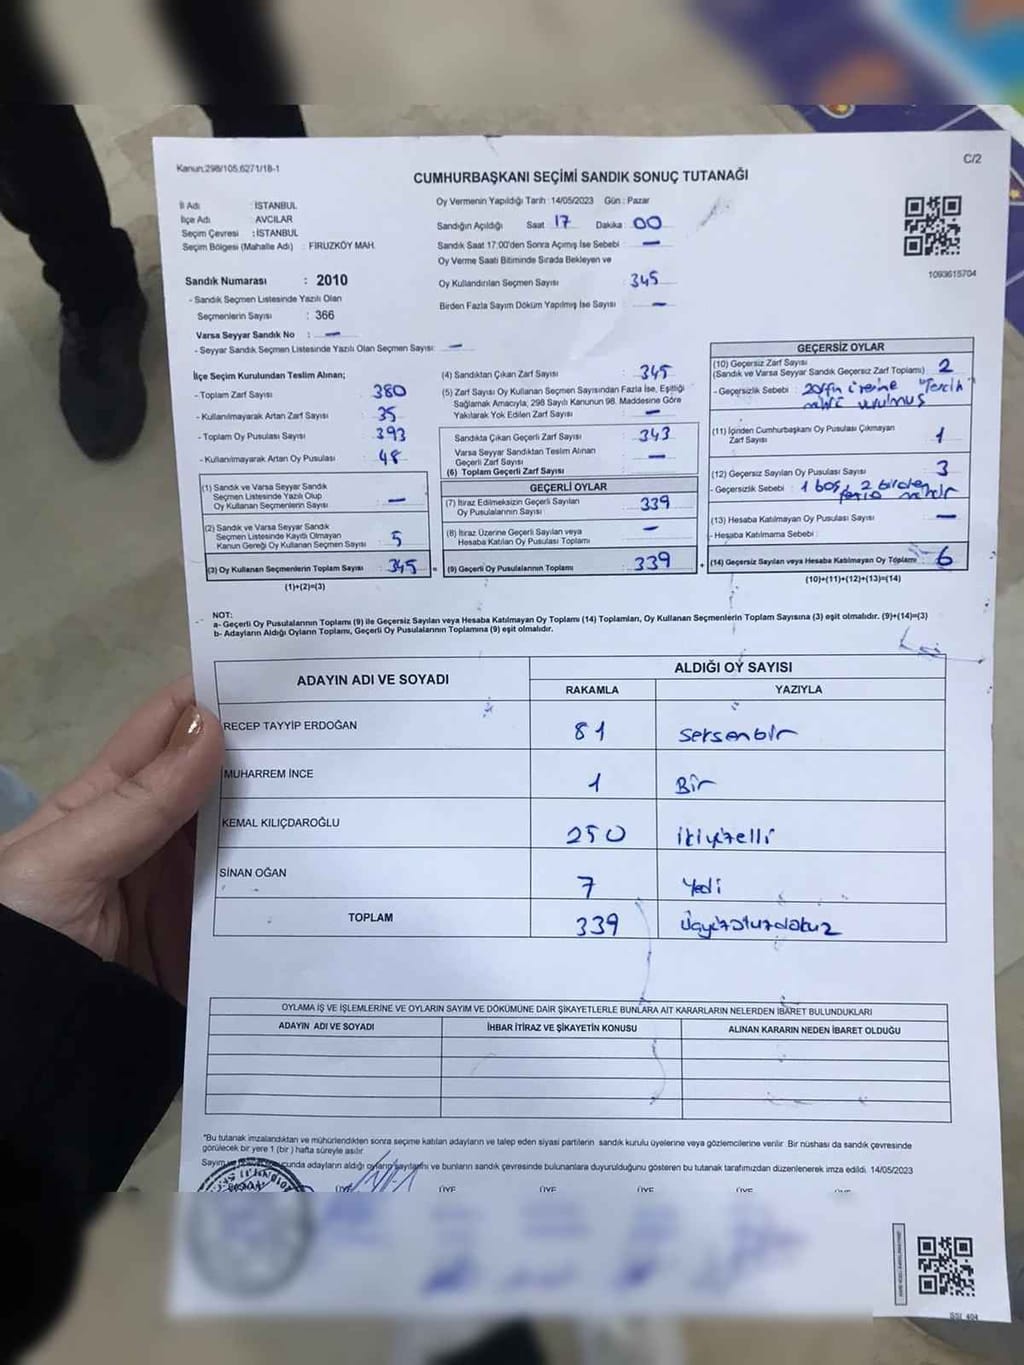 Kanun:298/105,6271/18-1
C/2
CUMHURBAŞKANI SEÇİMİ SANDIK SONUÇ TUTANAĞI
İl Adı : İSTANBUL
İlçe Adı AVCILAR
Seçim Çevresi : İSTANBUL
Seçim Bölgesi (Mahalle Adı) : FİRUZKÖY MAH.
Sandık Numarası : 2010
- Sandık Seçmen Listesinde Yazılı Olan
Seçmenlerin Sayısı : 366
Varsa Seyyar Sandık No : —
- Seyyar Sandık Seçmen Listesinde Yazılı Olan Seçmen Sayısı: —
Oy Vermenin Yapıldığı Tarih : 14/05/2023 Gün : Pazar
Sandığın Açıldığı Saat 17 Dakika 00
Sandık Saat 17:00'den Sonra Açımış İse Sebebi : —
Oy Verme Saati Bitiminde Sırada Bekleyen ve
Oy Kullandırılan Seçmen Sayısı : 345
Birden Fazla Sayım Döküm Yapılmış İse Sayısı : —
1093615704
İlçe Seçim Kurulundan Teslim Alınan;
- Toplam Zarf Sayısı : 380
- Kullanılmayarak Artan Zarf Sayısı : 35
- Toplam Oy Pusulası Sayısı : 393
- Kullanılmayarak Artan Oy Pusulası : 48
(1) Sandık ve Varsa Seyyar Sandık
Seçmen Listesinde Yazılı Olup
Oy Kullanan Seçmenlerin Sayısı : —
(2) Sandık ve Varsa Seyyar Sandık
Seçmen Listesinde Kayıtlı Olmayan
Kanun Gereği Oy Kullanan Seçmen Sayısı : 5
(3) Oy Kullanan Seçmenlerin Toplam Sayısı : 345
(1)+(2)=(3)
(4) Sandıktan Çıkan Zarf Sayısı : 345
(5) Zarf Sayısı Oy Kullanan Seçmen Sayısından Fazla İse, Eşitliği
Sağlamak Amacıyla, 298 Sayılı Kanunun 98. Maddesine Göre
Yakılarak Yok Edilen Zarf Sayısı : —
Sandıkta Çıkan Geçerli Zarf Sayısı : 343
Varsa Seyyar Sandıktan Teslim Alınan
Geçerli Zarf Sayısı : —
(6) Toplam Geçerli Zarf Sayısı
GEÇERLİ OYLAR
(7) İtiraz Edilmeksizin Geçerli Sayılan
Oy Pusulalarının Sayısı : 339
(8) İtiraz Üzerine Geçerli Sayılan veya
Hesaba Katılan Oy Pusulası Toplamı : —
= (9) Geçerli Oy Pusulalarının Toplamı : 339 +
GEÇERSİZ OYLAR
(10) Geçersiz Zarf Sayısı
(Sandık ve Varsa Seyyar Sandık Geçersiz Zarf Toplamı) : 2
- Geçersizlik Sebebi : "Tercih"
vurulmuş
(11) İçinden Cumhurbaşkanı Oy Pusulası Çıkmayan
Zarf Sayısı : 1
(12) Geçersiz Sayılan Oy Pusulası Sayısı : 3
- Geçersizlik Sebebi : 1 boş, 2 birden
(13) Hesaba Katılmayan Oy Pusulası Sayısı : —
- Hesaba Katılmama Sebebi :
(14) Geçersiz Sayılan veya Hesaba Katılmayan Oy Toplamı : 6
(10)+(11)+(12)+(13)=(14)
NOT:
a- Geçerli Oy Pusulalarının Toplamı (9) ile Geçersiz Sayılan veya Hesaba Katılmayan Oy Toplamı (14) Toplamları, Oy Kullanan Seçmenlerin Toplam Sayısına (3) eşit olmalıdır. (9)+(14)=(3)
b- Adayların Aldığı Oyların Toplamı, Geçerli Oy Pusulalarının Toplamına (9) eşit olmalıdır.
ADAYIN ADI VE SOYADI ALDIĞI OY SAYISI
RAKAMLA YAZIYLA
RECEP TAYYİP ERDOĞAN 81 seksenbir
MUHARREM İNCE 1 Bir
KEMAL KILIÇDAROĞLU 250 ikiyüzelli
SİNAN OĞAN 7 Yedi
TOPLAM 339 Üçyüzotuzdokuz
OYLAMA İŞ VE İŞLEMLERİNE VE OYLARIN SAYIM VE DÖKÜMÜNE DAİR ŞİKAYETLERLE BUNLARA AİT KARARLARIN NELERDEN İBARET BULUNDUKLARI
ADAYIN ADI VE SOYADI İHBAR İTİRAZ VE ŞİKAYETİN KONUSU ALINAN KARARIN NEDEN İBARET OLDUĞU
"Bu tutanak imzalandıktan ve mühürlendikten sonra seçime katılan adayların ve talep eden siyasi partilerin sandık kurulu üyelerine veya gözlemcilerine verilir. Bir nüshası da sandık çevresinde
görülecek bir yere 1 (bir) hafta süreyle asılır.
Sayım adayların aldığı oyların sayılarını ve bunların sandık çevresinde bulunanlara duyurulduğunu gösteren bu tutanak tarafımızdan düzenlenerek imza edildi. 14/05/2023
ÜYE ÜYE ÜYE ÜYE ÜYE